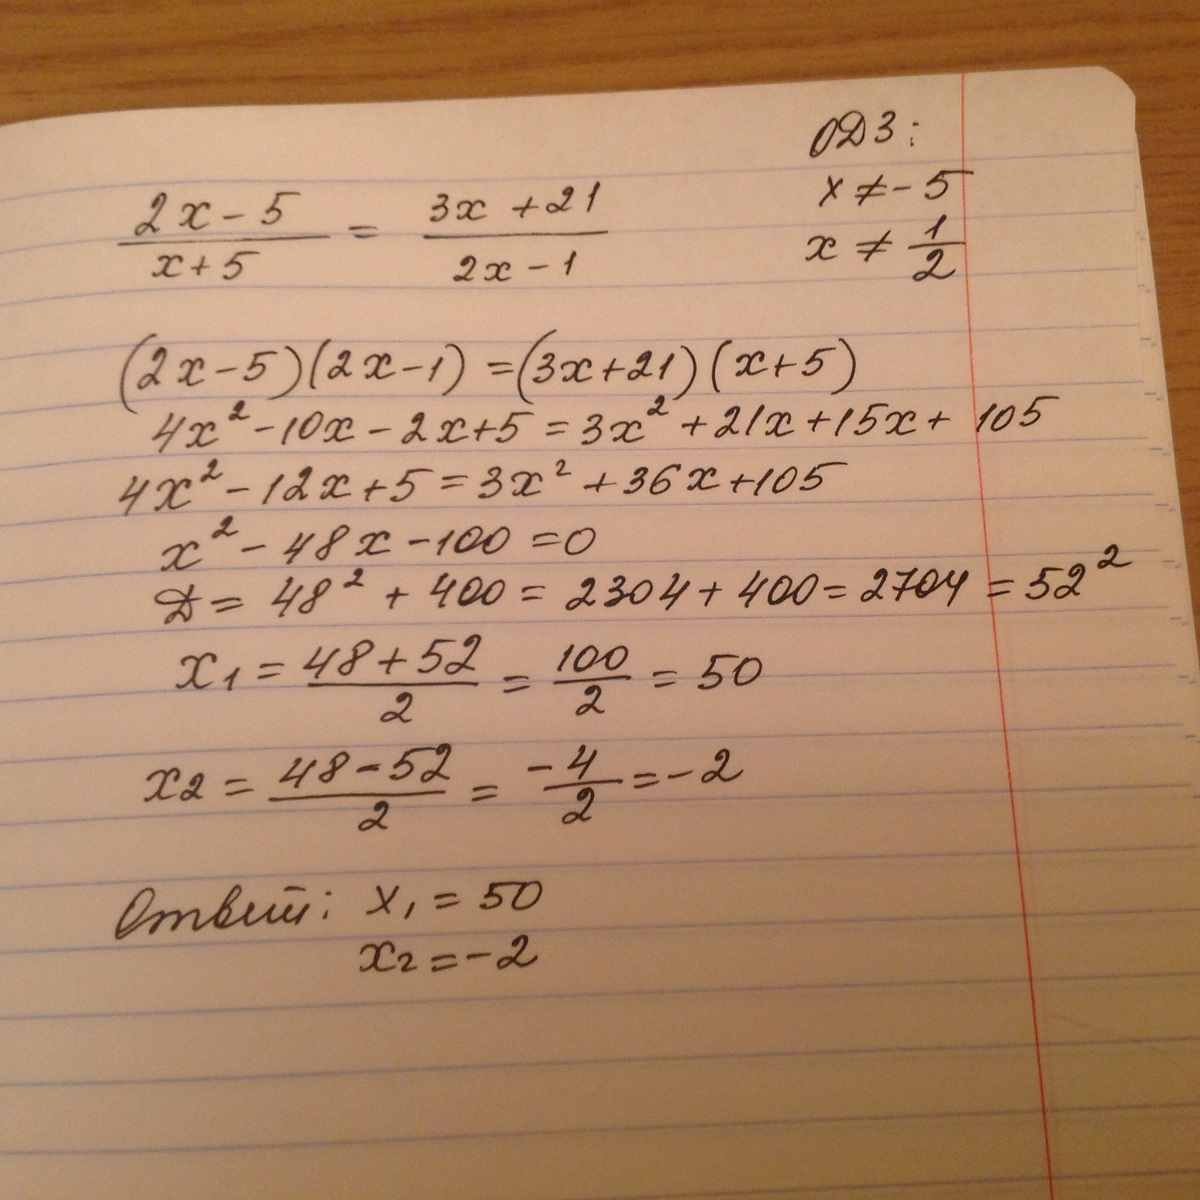 ОДЗ:
x ≠ -5
x ≠ 1/2
(2x - 5)/(x + 5) = (3x + 21)/(2x - 1)
(2x - 5)(2x - 1) = (3x + 21)(x + 5)
4x² - 10x - 2x + 5 = 3x² + 21x + 15x + 105
4x² - 12x + 5 = 3x² + 36x + 105
x² - 48x - 100 = 0
Д = 48² + 400 = 2304 + 400 = 2704 = 52²
x₁ = (48 + 52)/2 = 100/2 = 50
x₂ = (48 - 52)/2 = -4/2 = -2
Ответ: x₁ = 50
x₂ = -2